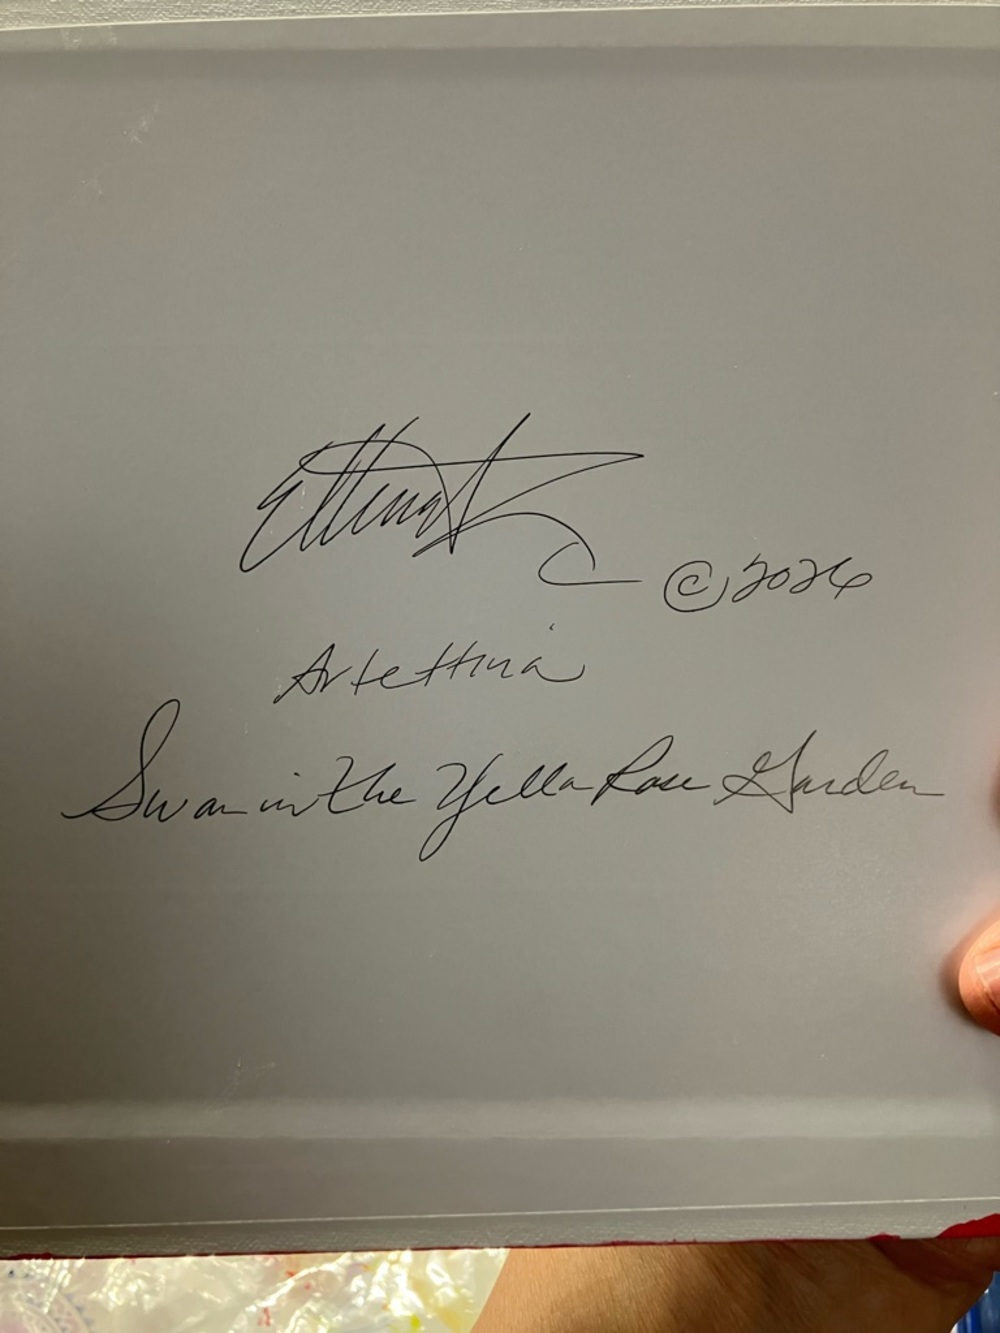 ©2026
Artettina
Swan in the Yella Rose Garden